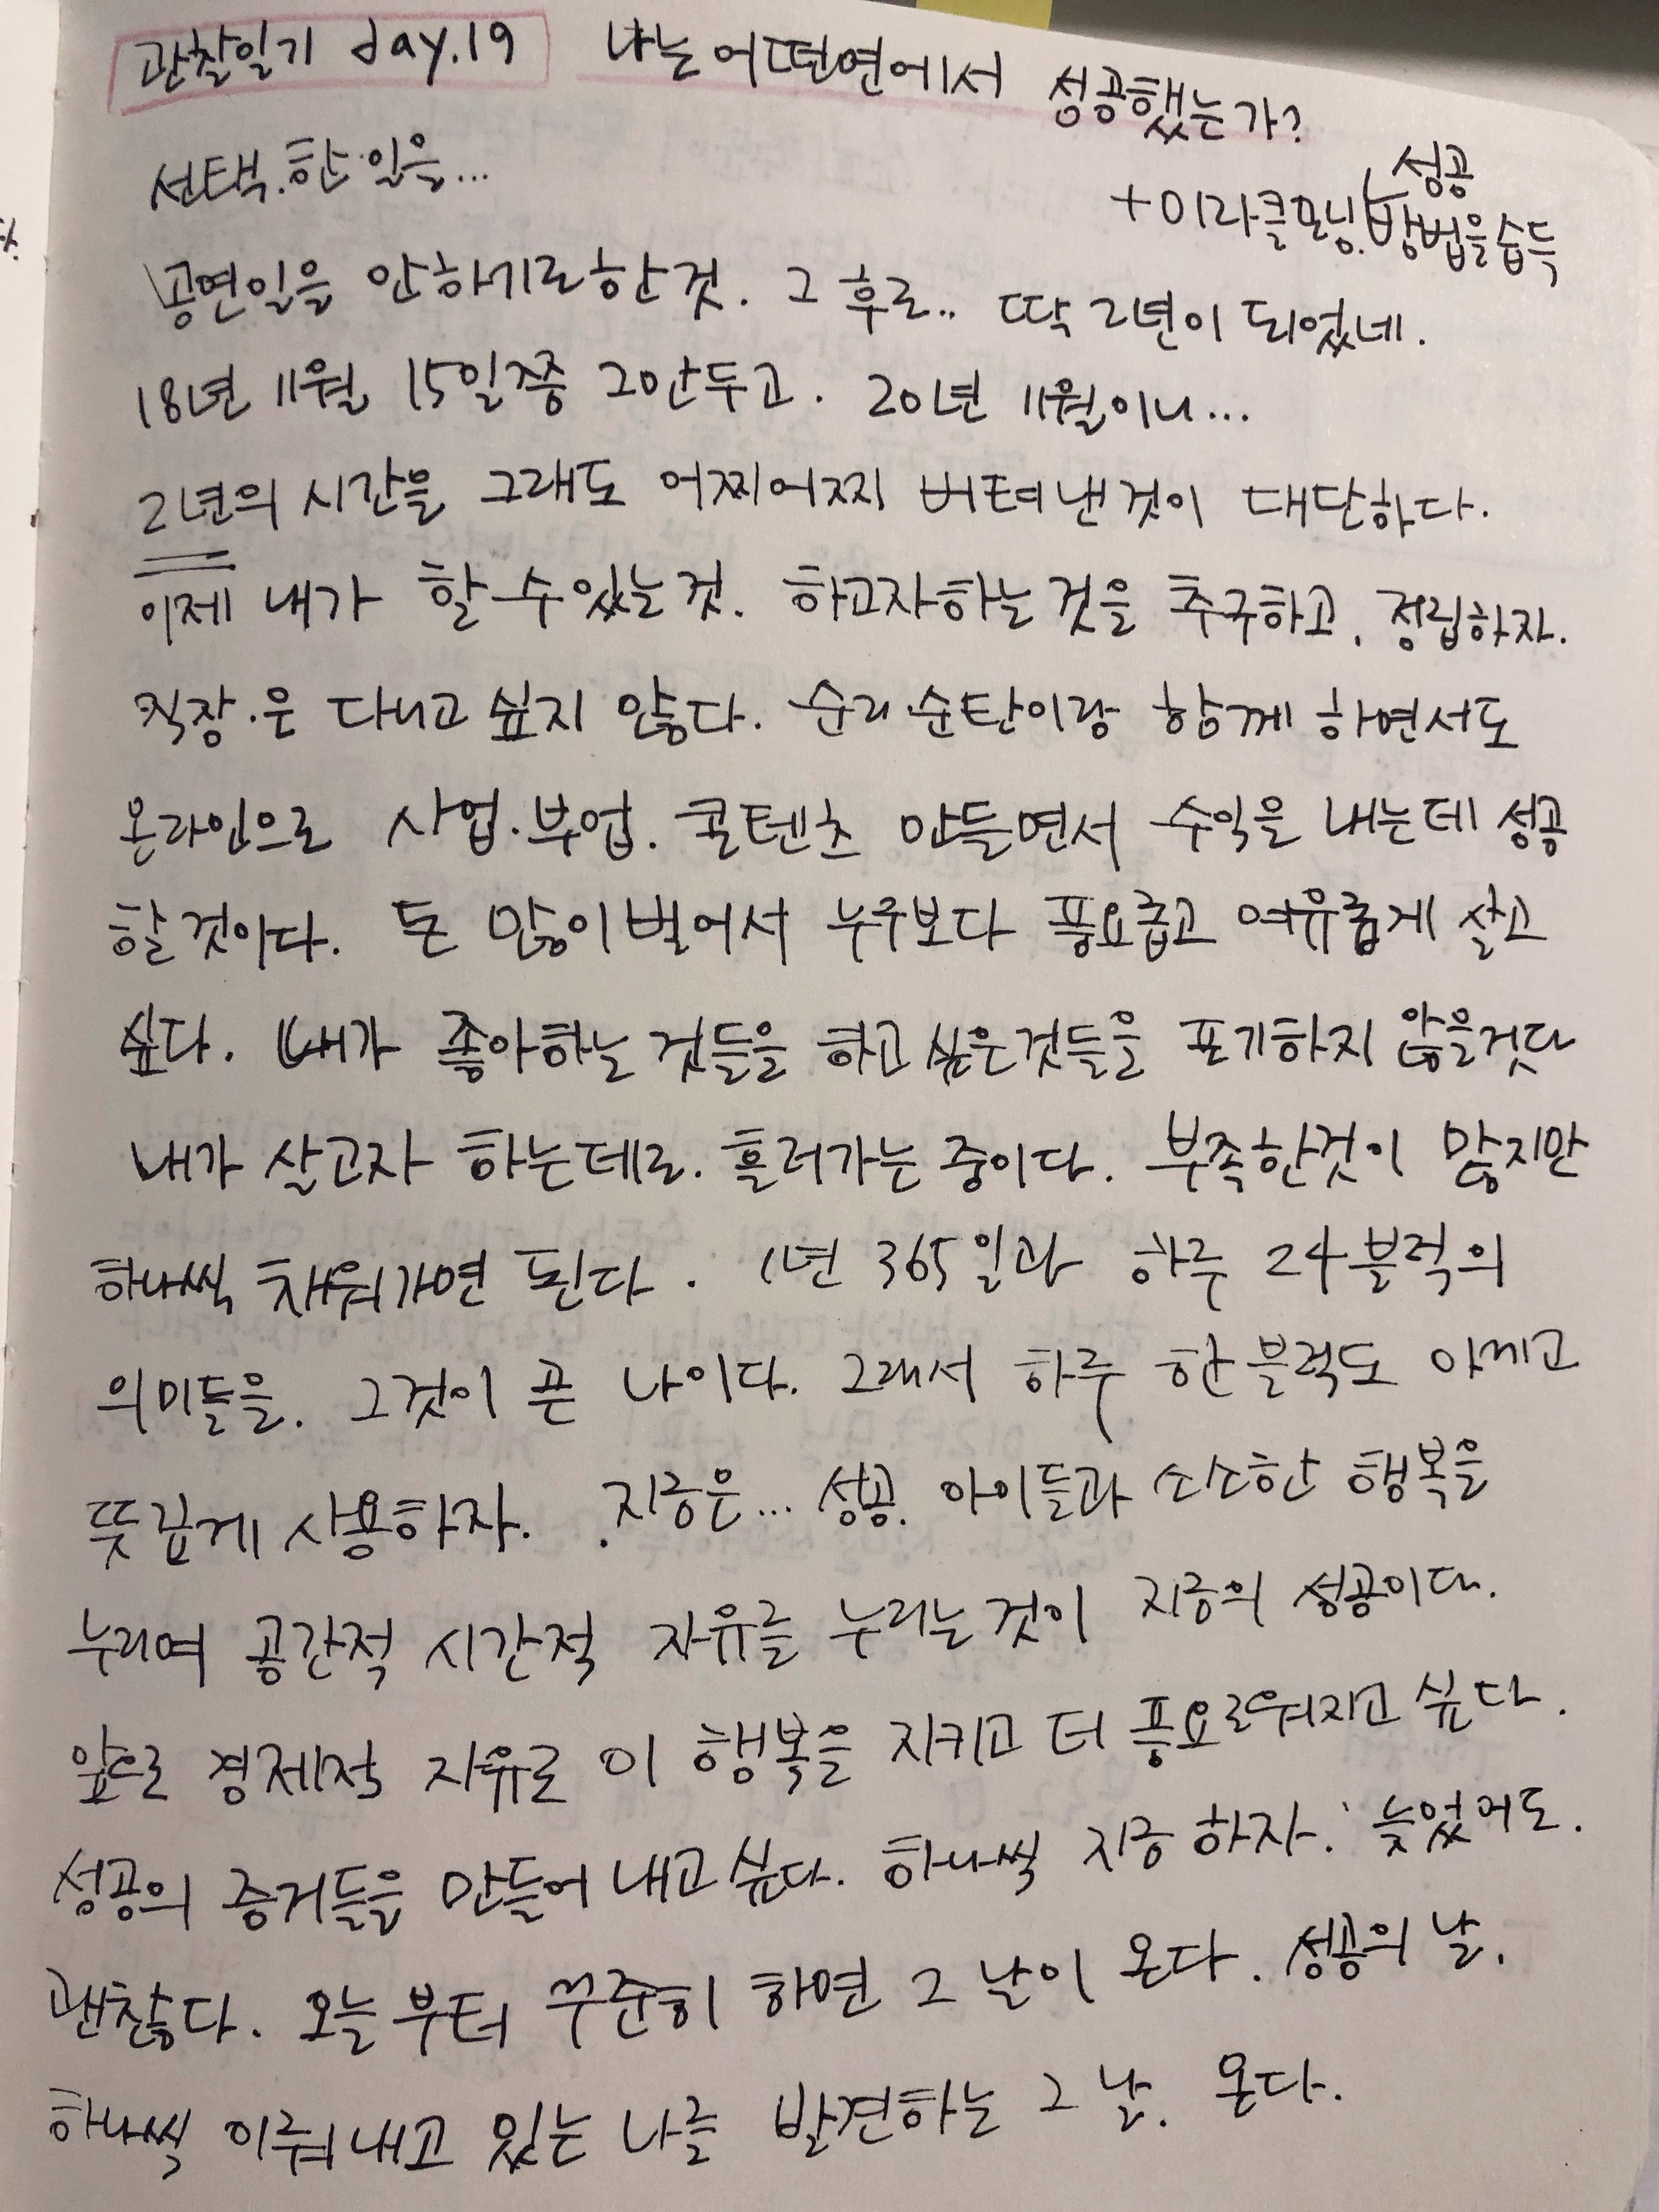 관찰일기 day.19 나는 어떤면에서 성공했는가?
선택.한 일을...
+미라클모닝. 성공
방법을 습득
공연일을 안하기로한것. 그 후로.. 딱 2년이 되었네.
18년 11월 15일쯤 그만두고. 20년 11월이니...
2년의 시간을 그래도 어찌어찌 버텨낸것이 대단하다.
이제 내가 할 수 있는 것. 하고자하는 것을 추구하고, 정립하자.
직장.은 다니고 싶지 않다. 순리순탄이랑 함께 하면서도
온라인으로 사업.부업. 콘텐츠 만들면서 수익을 내는데 성공
할 것이다. 돈 많이 벌어서 누구보다 풍요롭고 여유롭게 살고
싶다. 내가 좋아하는 것들을 하고싶은것들을 포기하지 않을것다
내가 살고자 하는데로. 흘러가는 중이다. 부족한것이 많지만
하나씩 채워가면 된다. 1년 365일과 하루 24블럭의
의미들을. 그것이 곧 나이다. 그래서 하루 한 블럭도 아끼고
뜻깊게 사용하자. 지금은... 성공. 아이들과 소소한 행복을
누리며 공간적 시간적 자유를 누리는 것이 지금의 성공이다.
앞으로 경제적 자유로 이 행복을 지키고 더 풍요로워지고 싶다.
성공의 증거들을 만들어 내고싶다. 하나씩 지금 하자. 늦었어도.
괜찮다. 오늘부터 꾸준히 하면 그 날이 온다. 성공의 날.
하나씩 이뤄내고 있는 나를 발견하는 그 날. 온다.